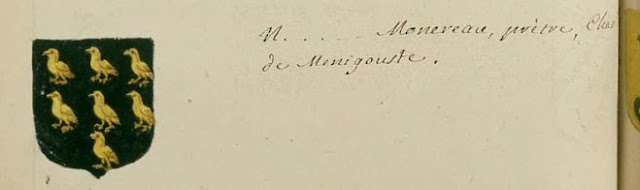 N. . . . . . Monereau, prêtre, Chan
de Menigouste.